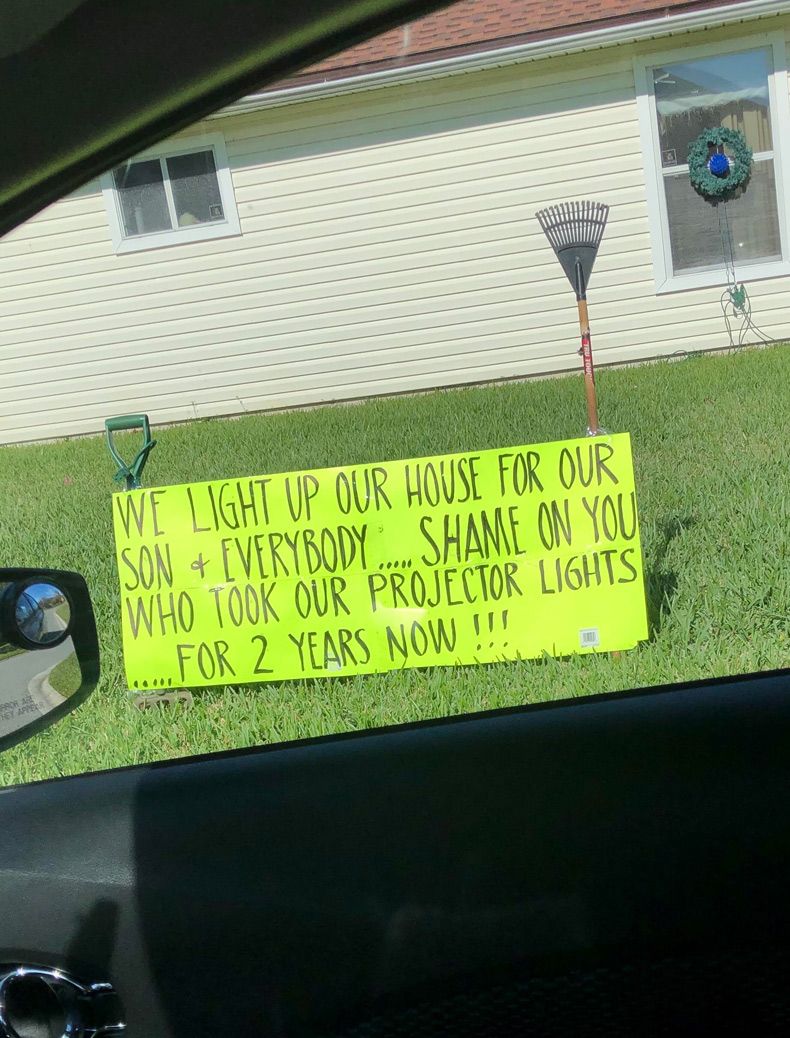 WE LIGHT UP OUR HOUSE FOR OUR
SON & EVERYBODY..... SHAME ON YOU
WHO TOOK OUR PROJECTOR LIGHTS
.....FOR 2 YEARS NOW !!!